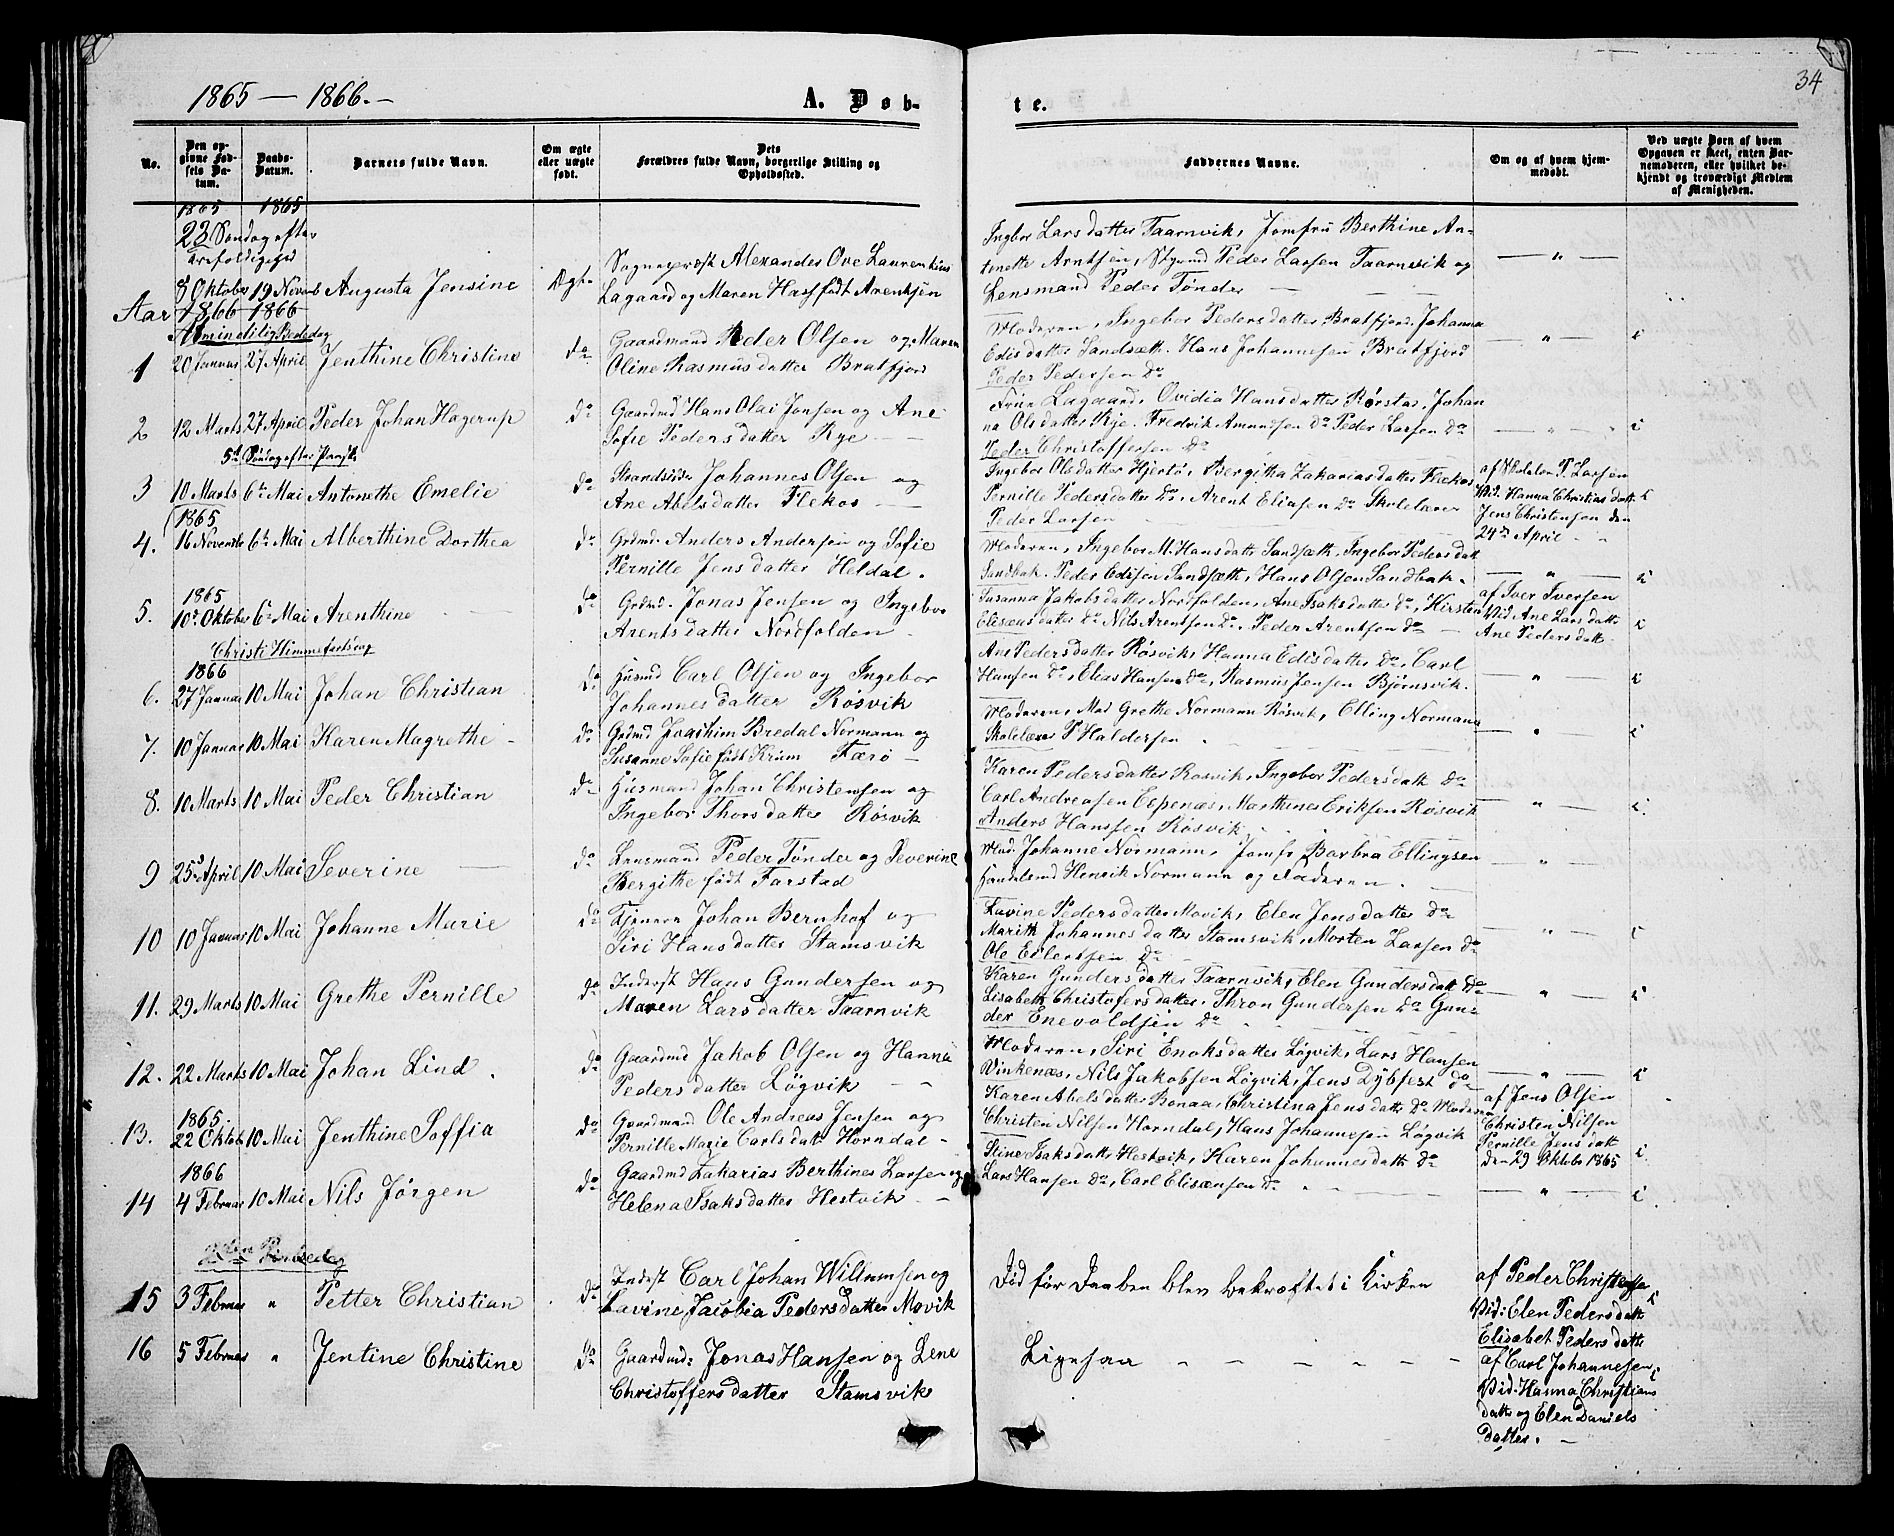 34
1865 — 1866. —
A. Døb-
te.
No.
Den op-
givne Fød-
sels Da-
tum.
Daabs-
Datum.
Barnets fulde Navn.
Om ægte
eller uægte
født.
Dets
Forældres fulde Navn, borgerlige Stilling og
Opholdssted.
Faddernes Navne.
Om og af hvem hjem-
medøbt.
Ved uægte Børn af hvem
Opgaven er skeet, enten Bar-
nemoderen, eller hvilket be-
kjendt og troværdigt Medlem
af Menigheden.
1865 1865
23 Søndag efter
Trefoldighed
8 Oktober 19 Novemb Augusta Jensine Ægte
Sognepræst Alexander Ove Laurentius
Lagaard og Maren Hass født Arentsen
Ingbor Larsdatter Taarnvik, Jomfru Berthine An-
tonette Arntsen, Peder Larsen Taarnvik og
Lensmand Peder Tønder — — —
— " —
Aar 1866 — 1866
Almindelig Bededag
1 20 Januar 27 April Jenthine Christine do
Gaardmand Peder Olsen og Maren
Oline Rasmusdatter Bratfjord
Moderen, Ingebor Pedersdatter Bratfjord, Johanna
Edisdatter Sandsæth. Hans Johannesen Bratfjord
Peder Pedersen do
— " — i
2 12 Marts 27 April Peder Johan Hagerup do
Gaardmd Hans Olai Jonsen og Ane
Sofie Pedersdatter Rye — —
Frue Lagaard, Ovidia Hansdatter Rørstad, Johan
na Olsdatter Rye. Fredrik Amundsen do Peder Larsen do
Peder Christoffersen do
— " — i
5te Søndag efter Paaske
3 10 Marts 6te Mai Antonethe Emelie do
Strandsider Johannes Olsen og
Ane Abelsdatter Flekos —
Ingebor Olsdatter Hjertø, Bergitha Zakariasdatter Flekos
Pernille Pedersdatter do, Arent Eliasen do Skolelærer
Peder Larsen
af Skolelær P. Larsen
Vid. Hanna Christiasdatt
Jens Christensen den
24de April
i
1865
4. 16 Novembr 6te Mai Alberthine Dorthea do
Grdmd. Anders Andersen og Sofie
Pernille Jensdatter Heldal.
Moderen, Ingebor M. Hansdatter Sandsæth. Ingebor Pedersdatt
Sandbak. Peder Edisen Sandsæth, Hans Olsen Sandbak.
— " — i
1865
5. 10de Oktober 6te Mai Arenthine do
Grdmd. Jonas Jensen og Ingebor
Arentsdatter Nordfolden
Susanna Jakobsdatter Nordfolden, Ane Isaksdatter do, Kirsten
Eliseusdatter do Nils Arentsen do. Peder Arentsen do —
af Iver Iversen
Vid. Ane Larsdatt
Ane Pedersdatt.
i
Christi Himmelfartsdag
1866
6. 27 Januar 10 Mai Johan Christian do
Husmd Carl Olsen og Ingebor
Johannesdatter Røsvik
Ane Pedersdatter Røsvik, Hanna Edisdatter do, Carl
Hansen do, Elias Hansen do, Rasmus Jensen Bjørnsvik.
— " — i
7. 10 Januar 10 Mai Karen Magrethe — do
Grdmd Joachim Bredal Normann og
Susanne Sofie født Krum Færø —
Moderen, Mad Grethe Normann Røsvik, Elling Normann
Skolelærer P Haldorsen
— " — i
8. 10 Marts 10 Mai Peder Christian do
Husmand Johan Christensen og
Ingebor Thorsdatter Røsvik
Karen Pedersdatter Røsvik, Ingebor Pedersdatt do
Carl Andreasen Espenæs, Marthines Eriksen Røsvik
Anders Hanssen Røsvik
— " — i.
9 25de April 10 Mai Severine — do
Lensmand Peder Tønder og Severine
Bergithe født Farstad
Mad. Johanne Normann, Jomfr Barbra Ellingsen
Handelsmd Henrik Normann og Faderen.
— " —
10 10 Januar 10 Mai Johanne Marie do
Tjener Johan Bernhof og
Siri Hansdatter Stamsvik
Lavine Pedersdatter Movik, Elen Jensdatter do
Marith Johannesdatter Stamsvik, Morten Larsen do
Ole Eilertsen do
— " — i
11. 29 Marts 10 Mai Grethe Pernille do
Inderst Hans Gundersen og
Maren Larsdatter Taarnvik
Karen Gundersdatter Taarnvik, Elen Gundersdatt do
Lisabeth Christofersdatter, Thron Gundersen do Gun-
der Enevoldsen do
— " — i
12. 22 Marts 10 Mai Johan Lind. do
Gaardmd Jakob Olsen og Hanna
Pedersdatter Løgvik — —
Moderen, Siri Enoksdatter Løgvik, Lars Hansen
Vinkenæs, Nils Jakobsen Løgvik, Jens Dybfest do
— " — i
1865
13. 22 Oktob 10 Mai Jenthine Soffia do
Gaardmand Ole Andreas Jensen og
Pernille Marie Carlsdatt Horndal —
Karen Abelsdatter Bonaa, Christina Jensdatt do Moderen
Christen Nilsen Horndal, Hans Johannesen Løgvik
af Jens Olsen
Christen Nilsen
Pernille Jensdatt
den 29 Oktobr 1865
i.
1866
14 4 Februar 10 Mai Nils Jørgen do
Gaardmd Zakarias Berthines Larsen og
Helena Isaksdatter Hestvik —
Stine Isaksdatt Hestvik, Karen Johannesdatt do
Lars Hansen do, Carl Eliseusen do
— " — i.
2den Pintsedag
15 3 Februar " Petter Christian do
Inderst Carl Johan Willumsen og
Lavine Jacobia Pedersdatter Movik
Død før Daaben blev bekræftet i Kirken
af Peder Christensen
Vid: Elen Pedersdatt
Elisabet Pedersdatt
i
16 5 Februar " Jentine Christine do
Gaardmd: Jonas Hansen og Lene
Christoffersdatter Stamsvik
Ligesaa — — — — —
af Carl Johannesen
Vid. Hanna Christians
datt og Elen Daniels
datter. —
i